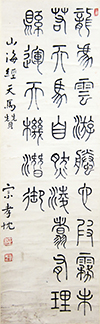 龍馮雲游騰它叚霧未
若天馬自然凌翥有理
縣運天機潛御
山海經天馬贊
宗孝忱